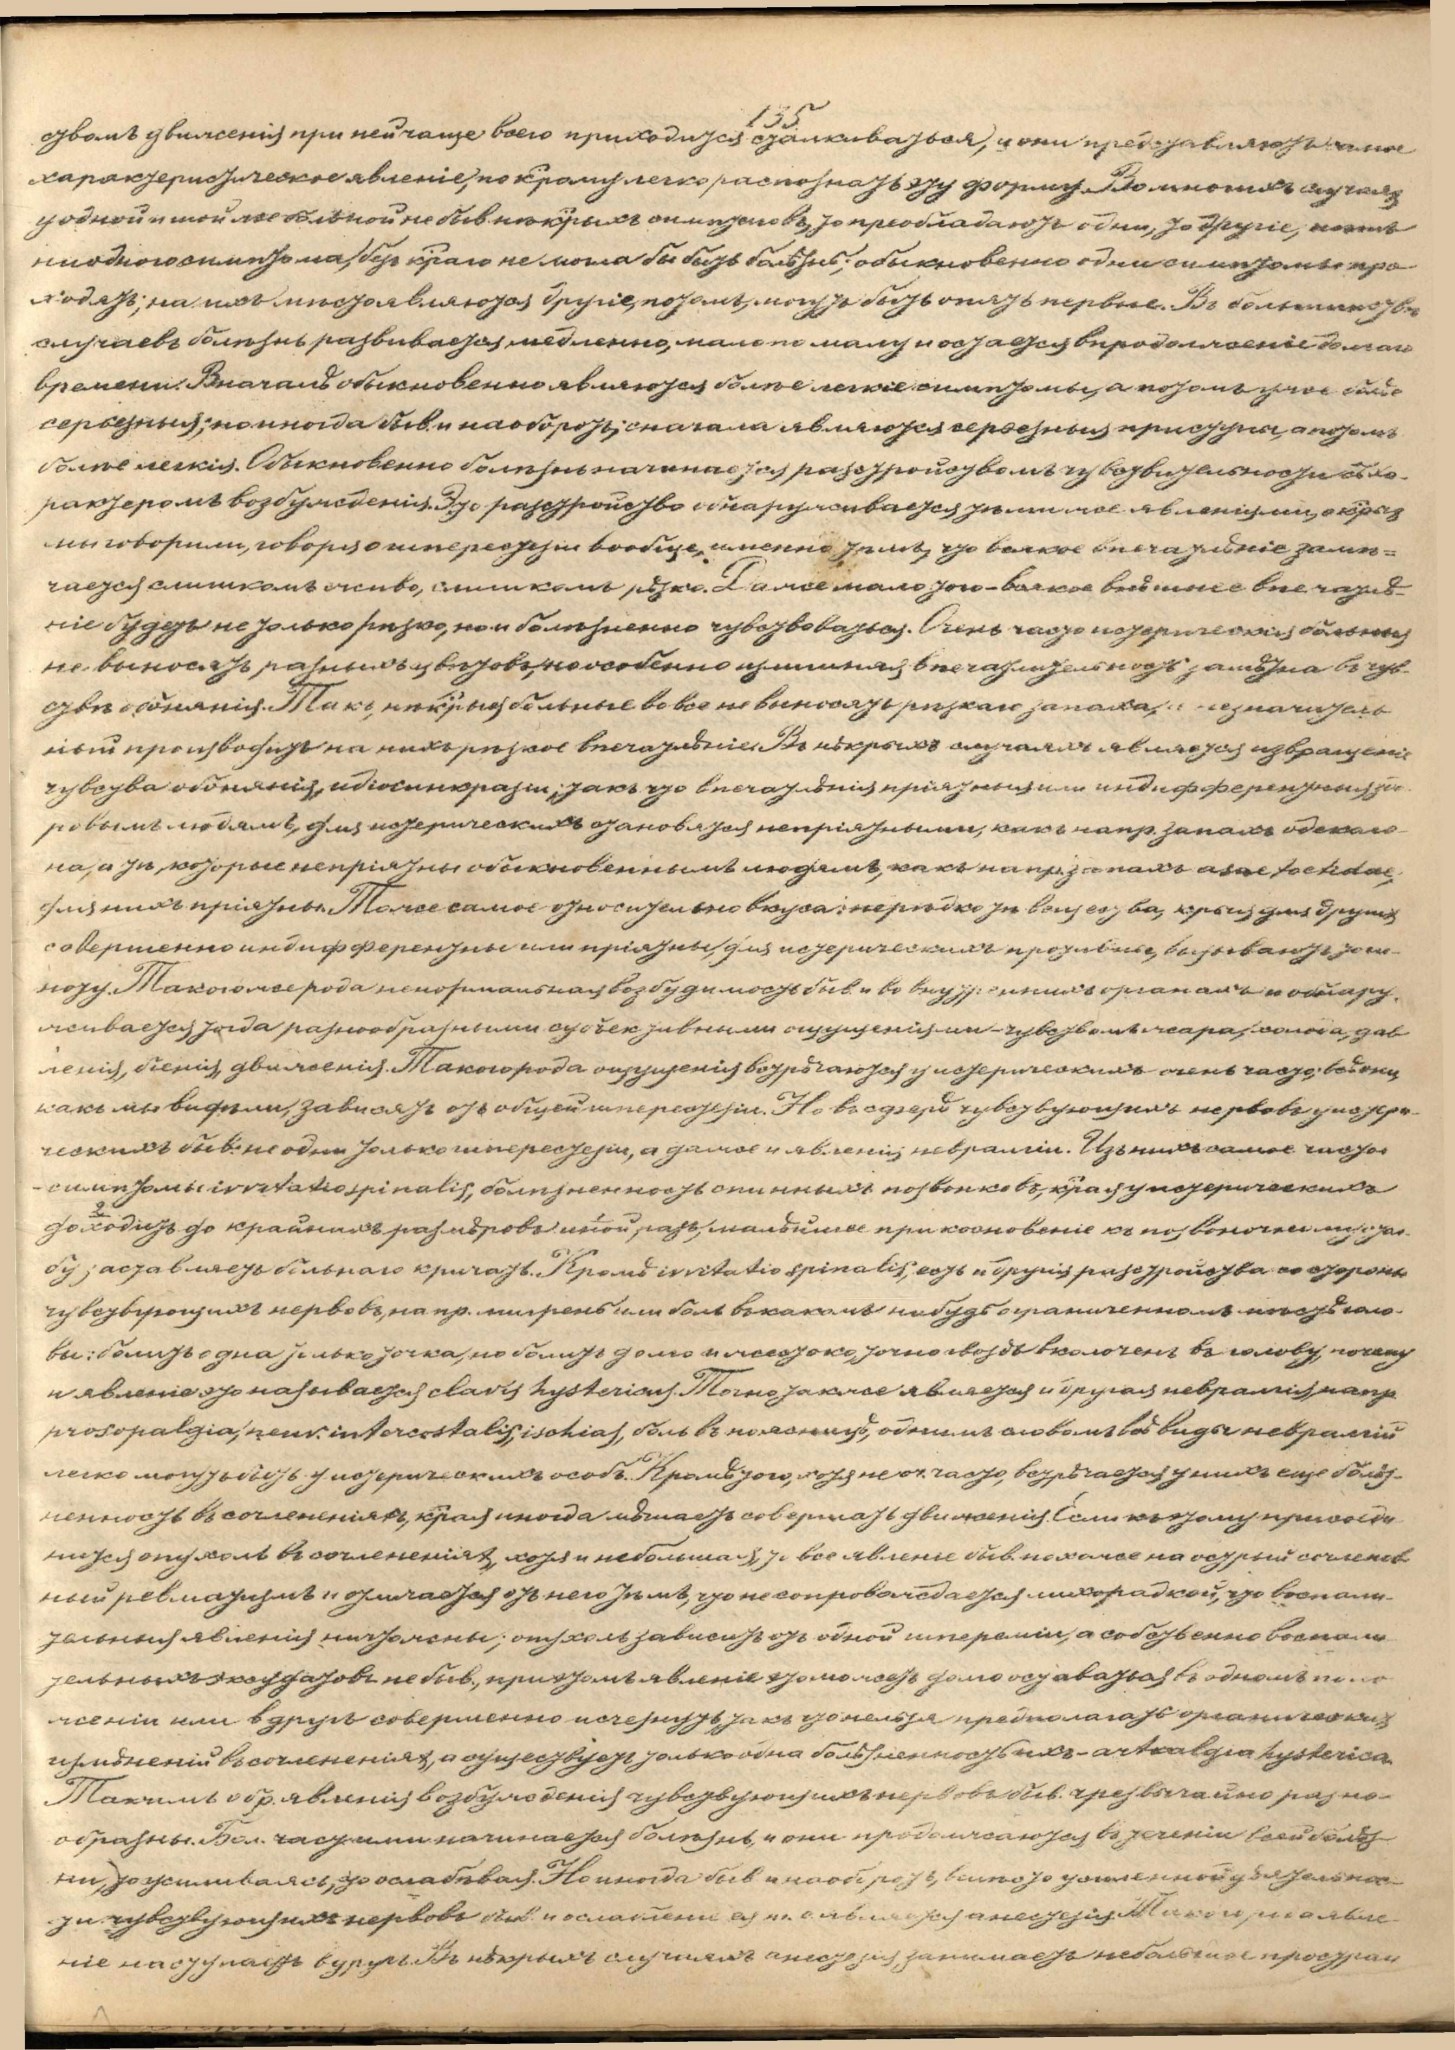 135
ствомъ движенія при ней чаще всего приходится сталкиваться, и они представляютъ самое
характеристическое явленіе, по крому легко распознать эту форму. Во многихъ случаяхъ
у одной и той же больной не быв. нѣкрыхъ симптомовъ, то преобладаютъ одни, то другіе,
ни одного симптома, безъ краго не могла бы быть болѣзнь; обыкновенно одни симптомы про
ходятъ; на ихъ мѣсто являются другіе, потомъ, могутъ быть опять первые. Въ большинствѣ
случаевъ болѣзнь развивается медленно, мало по малу и остается впродолженіе долгаго
времени. Вначалѣ обыкновенно являются болѣе легкіе симптомы, а потомъ уже болѣе
серьезныя; но иногда быв. и наоборотъ; сначала являются серьезныя приступы, а потомъ
болѣе легкія. Обыкновенно болѣзнь начинается разстройствомъ чувствительности съ ха-
рактеромъ возбужденія. Это разстройство обнаруживается тѣми же явленіями, о крыхъ
мы говорили, говоря о гиперестезіи вообще, именно тѣмъ, что всякое впечатлѣніе замѣ=
чается слишкомъ живо, слишкомъ рѣзко. Даже мало того – всякое внѣшнее впечатлѣ-
ніе будетъ не только рѣзко, но и болѣзненно чувствоваться. Очень часто истерическія больныя
не выносятъ разныхъ цвѣтовъ, но особенно излишняя впечатлительность замѣтна въ чув-
ствѣ обонянія. Такъ, нѣкрыя больные вовсе не выносятъ рѣзкаго запаха, незначитель
ный производитъ на нихъ рѣзкое впечатлѣніе. Въ нѣкрыхъ случаяхъ является извращеніе
чувства обонянія, идіосинкразіи; такъ что впечатлѣнія пріятныя или индифферентныя здо
ровымъ людямъ, для истерическихъ становятся непріятными, какъ напр. запахъ одекало-
на, а тѣ, которые непріятны обыкновеннымъ людямъ, какъ напр. запахъ asae foetidae,
для нихъ пріятны. Тоже самое относительно вкуса: нерѣдко тѣ вещества, крыя для другихъ
совершенно индифферентны или пріятны, для истерическихъ противны, вызываютъ тош-
ноту. Такого же рода ненормальная возбудимость быв. и во внутреннихъ органахъ и обнару-
живается тогда разнообразными субъективными ощущеніями – чувствомъ жара, холода, дав
ленія, біенія, движенія. Такого рода ощущенія встрѣчаются у истерическихъ очень часто; всѣ они,
какъ мы видѣли, зависятъ отъ общей гиперестезіи. Но въ сферѣ чувствующихъ нервовъ у истери-
ческихъ быв. не одни только гиперестезіи, а даже и явленія невралгіи. Изъ нихъ самое частое
- симптомы irritatio spinalis, болѣзненность спинныхъ позвонковъ, края у истерическихъ
доходитъ до крайнихъ размѣровъ иной разъ, малѣйшее прикосновеніе къ позвоночному стол-
бу заставляетъ больнаго кричать. Кромѣ irritatio spinalis, есть и другія разстройства со стороны
чувствующихъ нервовъ, напр. мигрень или боль въ какомъ нибудь ограниченномъ мѣстѣ голо-
вы: болитъ одна только точка, но болитъ долго и жестоко, точно гвоздь вколоченъ въ голову, почему
и явленіе это называется clavis hystericus. Точно также является и другая невралгія, напр.
prosopalgia, neur. intercostalis, ischias, боль въ поясницѣ, однимъ словомъ всѣ виды невралгій
легко могутъ быть у истерическихъ особъ. Кромѣ того, хотя не оч. часто, встрѣчается у нихъ еще болѣз-
ненность въ сочлененіяхъ, края иногда мѣшаетъ совершать движенія. Если къ этому присоеди
нится опухоль въ сочлененіяхъ, хотя и небольшая, то все явленіе быв. похоже на острый сочленов
ный ревматизмъ и отличается отъ него тѣмъ, что не сопровождается лихорадкой, что воспали-
тельныя явленія ничтожны; опухоль зависитъ отъ одной гипереміи, а собственно воспали
тельныхъ экссудатовъ не быв., при этомъ явленіе это можетъ долго оставаться въ одномъ поло
женіи или вдругъ совершенно исчезнуть, такъ что нельзя предполагать органическихъ
измѣненій въ сочлененіяхъ, а существуетъ только одна болѣзненность ихъ – artralgia hysterica.
Такимъ обр. явленія возбужденія чувствующихъ нервовъ быв. чрезвычайно разно-
образны. Бол. частью ими начинается болѣзнь, и они продолжаются въ теченіи всей болѣз-
ни, то усиливаясь, то ослабѣвая. Но иногда быв. и наоборотъ, вмѣсто усиленной дѣятельнос-
ти чувствующихъ нервовъ быв. и ослабленіе ея и является анестезія. Такое явле
ніе наступаетъ вдругъ. Въ нѣкрыхъ случаяхъ анестезія занимаетъ небольшое простран